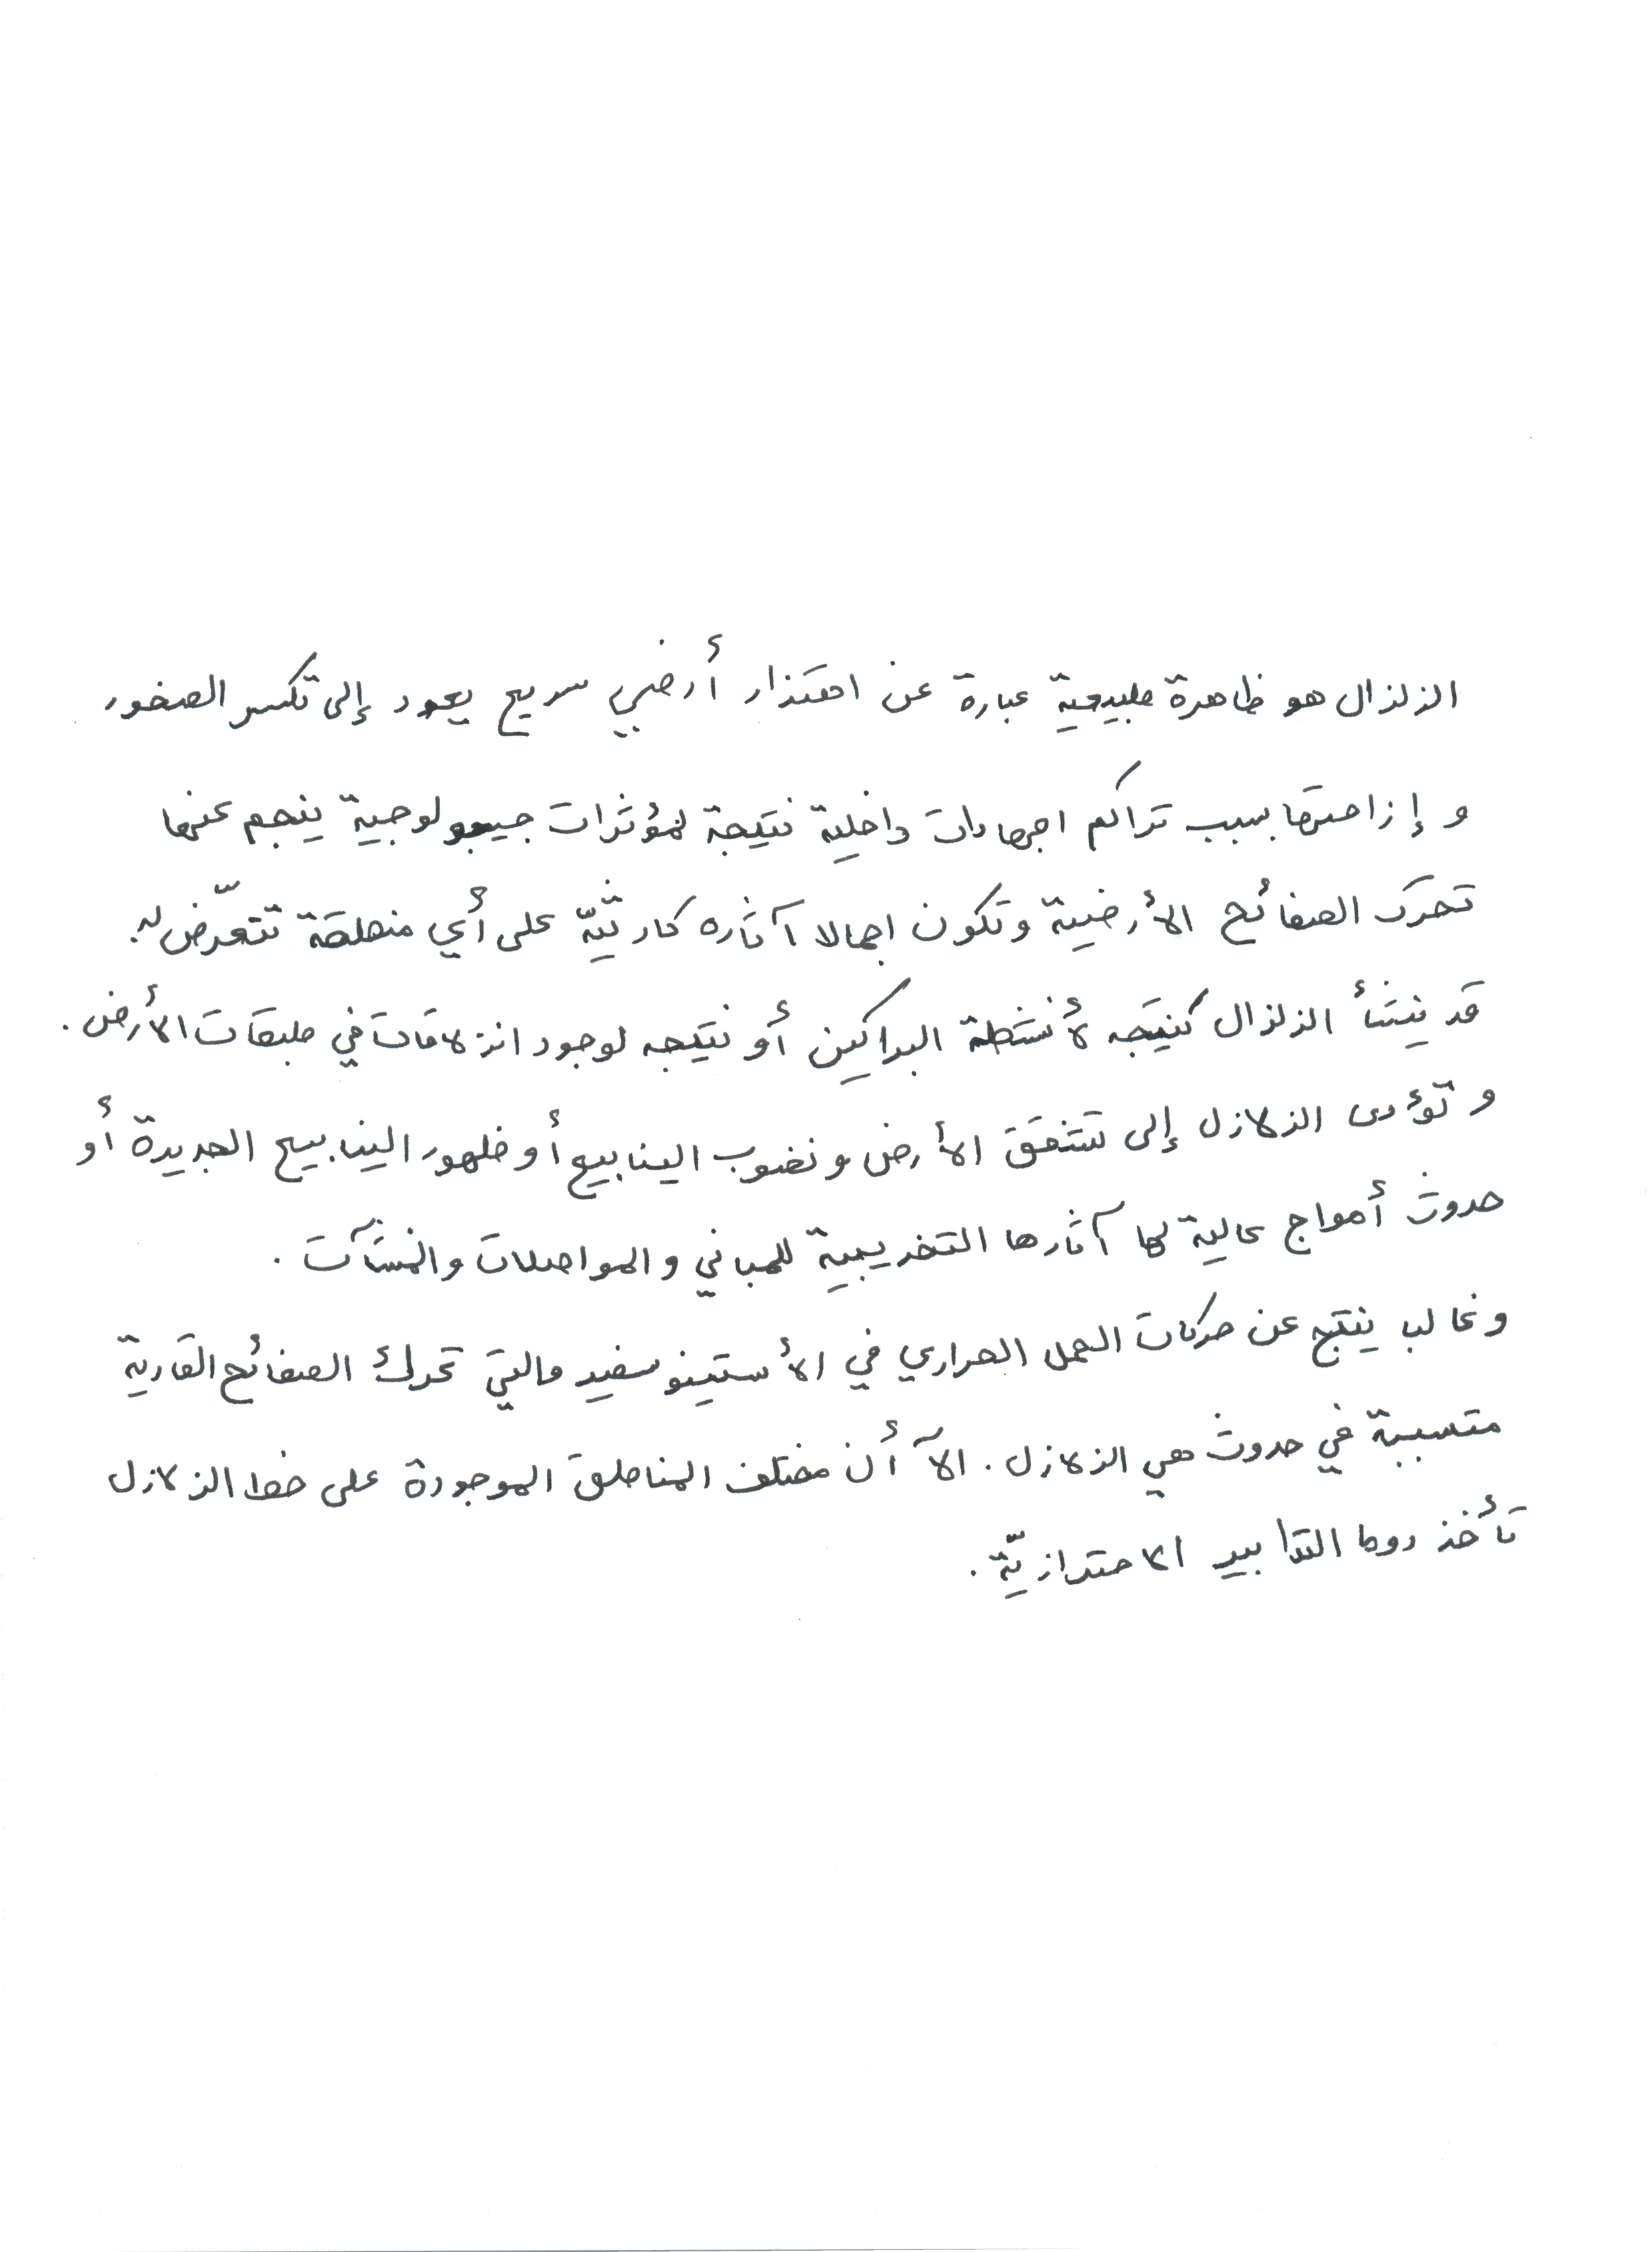 الزلزال هو ظاهرة طبيعية عبارة عن اهتزار أرضي سريع يعود إلى تكسر الصخور
و إزاحتها بسبب تراكم اجهادات داخلية نتيجة لمؤثرات جيولوجية ينجم عنها
تحرك الصفائح الأرضية وتكون اجمالا آثاره كارثيّة على أي منطقة تتعرّض له.
قد ينشأ الزلزال كنتيجه لأنشطة البراكين أو نتيجه لوجود انزلاقات في طبقات الأرض.
و تؤدى الزلازل إلى تشقق الأرض و نضوب الينابيع أو ظهور الينابيع الجديدة أو
حدوث أمواج عالية لها آثارها التخريبية للمباني والمواصلات والمنشآت.
وغالب ينتج عن حركات الحمل الحراري في الأستينوسفير والتي تحرك الصفائح القارية
متسببة في حدوث هي الزلازل. الآ أن مختلف المناطق الموجودة على خط الزلازل
تأخذ دوما التدابير الاحترازيّة.